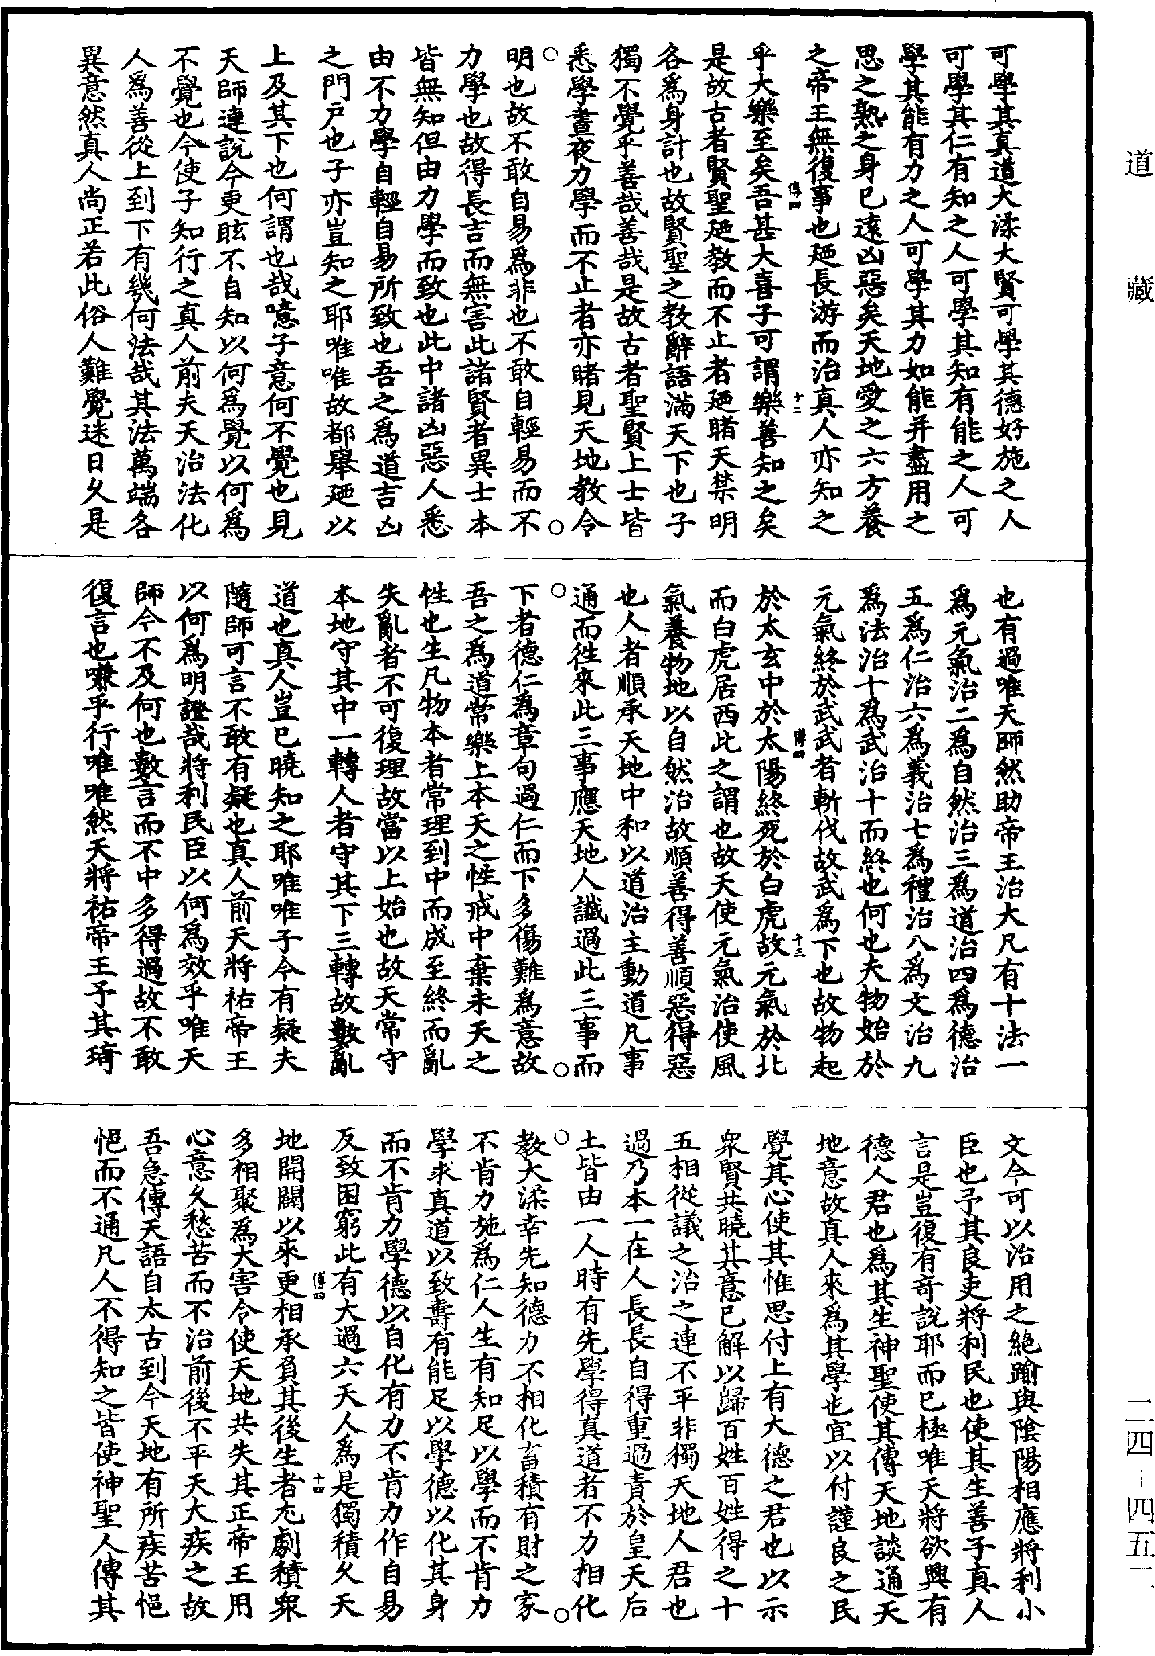 道藏
二四—四五二
可學其真道大渘大賢可學其德好施之人
可學其仁有知之人可學其知有能之人可
學其能有力之人可學其力如能并盡用之
思之熟之身已遠凶惡矣天地愛之六方養
之帝王無復事也廼長游而治真人亦知之
乎大樂至矣吾甚大喜子可謂樂善知之矣
傳四 十二
是故古者賢聖廼教而不止者廼睹天禁明
各為身計也故賢聖之教辭語滿天下也子
獨不覺乎善哉善哉是故古者聖賢上士皆
悉學晝夜力學而不止者亦睹見天地教令
明也故不敢自易為非也不敢自輕易而不
力學也故得長吉而無害此諸賢者異士本
皆無知但由力學而致也此中諸凶惡人悉
由不力學自輕自易所致也吾之為道吉凶
之門戶也子亦豈知之耶唯唯故都舉廼以
上及其下也何謂也哉噫子意何不覺也見
天師連說今更眩不自知以何為覺以何為
不覺也今使子知行之真人前夫天治法化
人為善從上到下有幾何法哉其法萬端各
異意然真人尚正若此俗人難覺迷日久是
也有過唯天師然助帝王治大凡有十法一
為元氣治二為自然治三為道治四為德治
五為仁治六為義治七為禮治八為文治九
為法治十為武治十而終也何也夫物始於
元氣終於武武者斬伐故武為下也故物起
於太玄中於太陽終死於白虎故元氣於北
傳四 十三
而白虎居西此之謂也故天使元氣治使風
氣養物地以自然治故順善得善順惡得惡
也人者順承天地中和以道治主動道凡事
通而徃來此三事應天地人讖過此三事而
下者德仁為章句過仁而下多傷難為意故
吾之為道常樂上本天之性戒中棄末天之
性也生凡物本者常理到中而成至終而亂
失亂者不可復理故當以上始也故天常守
本地守其中一轉人者守其下三轉故數亂
道也真人豈已曉知之耶唯唯子今有疑夫
隨師可言不敢有疑也真人前天將祐帝王
以何為明證哉將利民臣以何為效乎唯天
師今不及何也數言而不中多得過故不敢
復言也嗛乎行唯唯然天將祐帝王予其琦
文今可以治用之絕踰與陰陽相應將利小
臣也予其良吏將利民也使其生善子真人
言是豈復有奇說耶而已極唯天將欲興有
德人君也為其生神聖使其傳天地談通天
地意故真人來為其學也宜以付謹良之民
覺其心使其惟思付上有大德之君也以示
衆賢共曉其意已解以歸百姓百姓得之十
五相從議之治之連不平非獨天地人君也
過乃本一在人長長自得重過責於皇天后
土皆由一人時有先學得真道者不力相化
教大渘幸先知德力不相化畜積有財之家
不肯力施為仁人生有知足以學而不肯力
學求真道以致壽有能足以學德以化其身
而不肯力學德以自化有力不肯力作自易
反致困窮此有大過六天人為是獨積久天
傳四 十四
地開闢以來更相承負其後生者尤劇積衆
多相聚為大害令使天地共失其正帝王用
心意久愁苦而不治前後不平天大疾之故
吾急傳天語自太古到今天地有所疾苦悒
悒而不通凡人不得知之皆使神聖人傳其